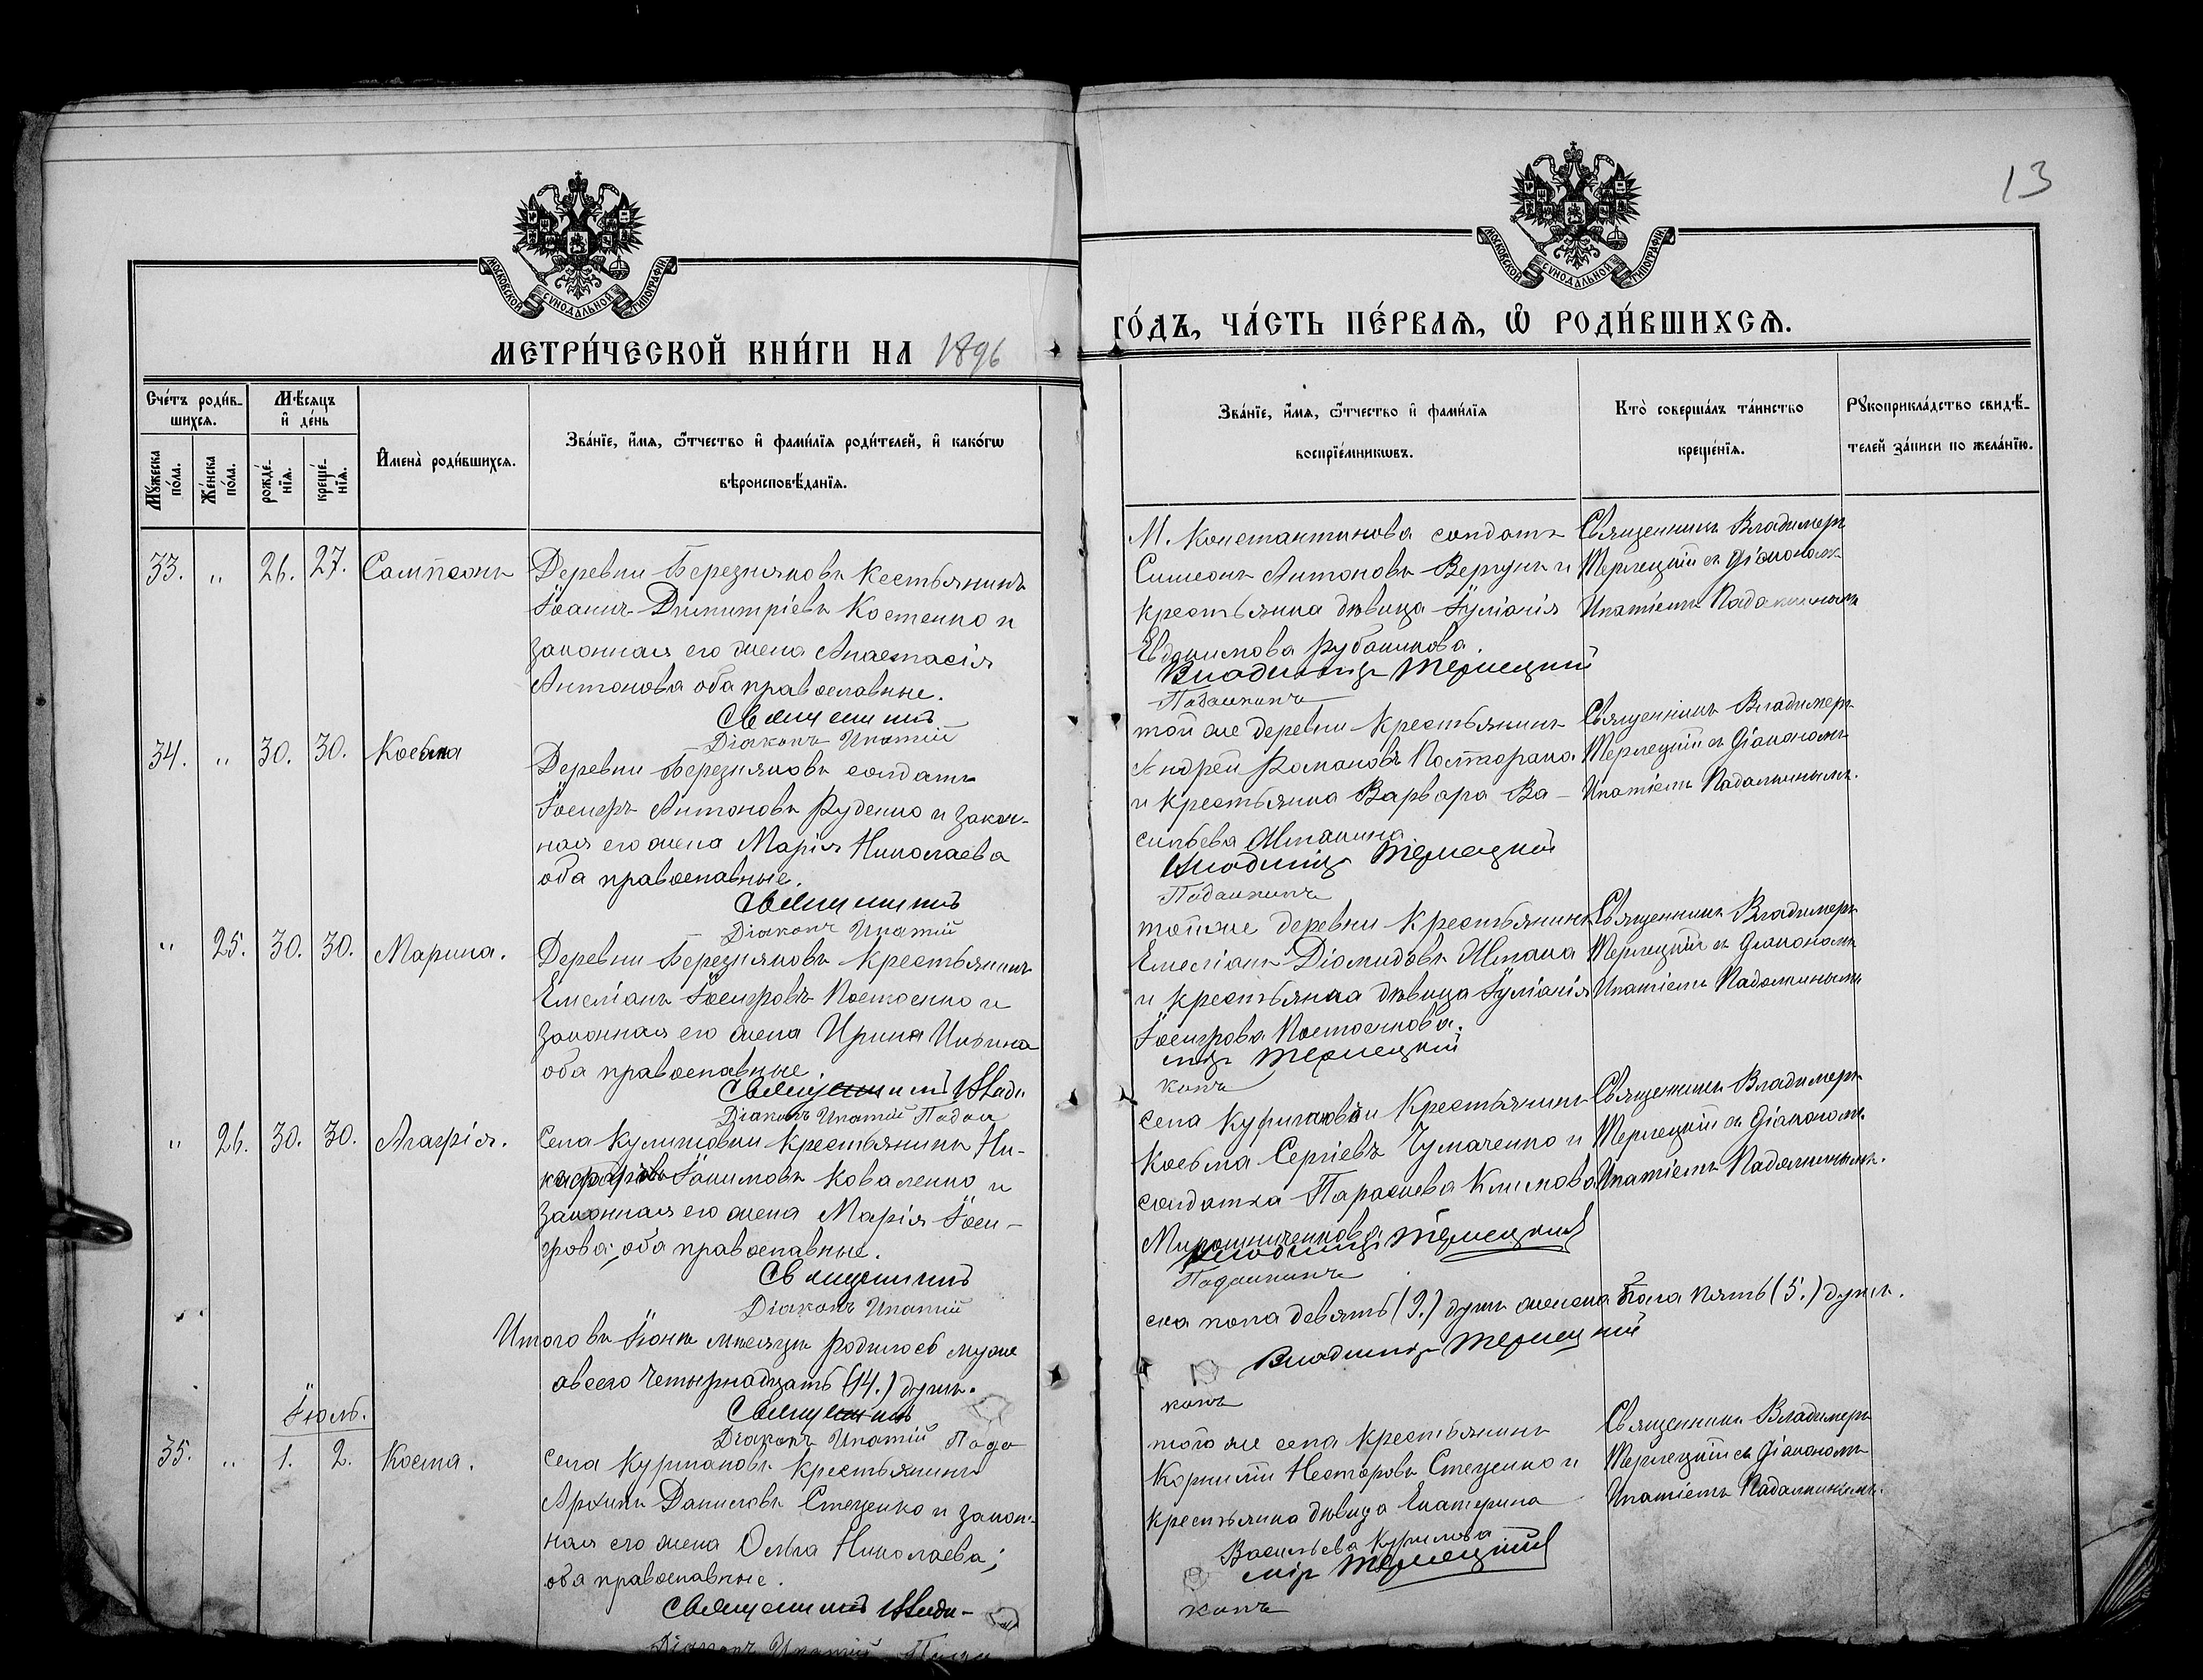 13
МОСКОВСКОЙ СѴНОДАЛЬНОЙ ТИПОГРАФІИ
МОСКОВСКОЙ СѴНОДАЛЬНОЙ ТИПОГРАФІИ
МЕТРИ́ЧЕСКОЙ КНИ́ГИ НА 1896
ГО́ДЪ, ЧА́СТЬ ПЕ́РВАЯ, Ѽ РОДИ́ВШИХСЯ.
Сче́тъ роди́в-
шихся.
Мꙋжеска по́ла.
Же́нска по́ла.
Мѣ́сяцъ
и҆ де́нь
рожде́-
нія.
креще́-
нія.
И҆мена̀ роди́вшихся.
Зва́нїе, и҆́мя, ѻ҆́тчество и҆ фами́лїя роди́телей, и҆ како́гѡ
вѣроисповѣ́данїя.
Зва́нїе, и҆́мя, ѻ҆́тчество и҆ фами́лїя
воспрїе́мникѡвъ.
Кто̀ соверша́лъ та́инство
креще́нїя.
Рꙋкоприкла́дство свидѣ́-
телей за́писи по жела́нїю.
33. " 26. 27. Сампсонъ
Деревни Березняковъ Кестьянинъ
Іоаннъ Димитріевъ Костенко и
законная его жена Анастасія
Антонова оба православные.
Священникъ
Діаконъ Ипатій
М. Константинова солдатъ
Симеонъ Антоновъ Вергунъ и
крестьянка дѣвица Іуліанія
Евдокимова Рубаникова.
Владиміръ Терлецкій
Падалкинъ
Священникъ Владимеръ
Терлецкій съ Діакономъ
Ипатіемъ Падалкинымъ
34. " 30. 30. Косьма
Деревни Березняковъ солдатъ
Іосифъ Антоновъ Руденко и закон-
ная его жена Марія Николаева
оба православные.
Священникъ
Діаконъ Ипатій
той же деревни крестьянинъ
Андрей Романовъ Полторака
и крестьянка Варвара Ва-
сильева
Владиміръ Терлецкій
Падалкинъ
Священникъ Владимеръ
Терлецкій съ Діакономъ
Ипатіемъ Падалкинымъ.
" 25. 30. 30. Марина.
Деревни Березняковъ крестьянинъ
Емеліанъ Іосифовъ Костенко и
законная его жена Ирина
оба православные
Священникъ Влади
Діаконъ Ипатій Падал
тойже деревни крестьянинъ
Емеліанъ Діомидовъ
и крестьянка дѣвица Іуліанія
Іосифова Костенкова.
міръ Терлецкій
кинъ
Священникъ Владимеръ
Терлецкій съ Діакономъ
Ипатіемъ Падалкинымъ
" 26. 30. 30. Агафія.
Села крестьянинъ Ни-
Іоакимовъ Коваленко и
законная его жена Марія Іоси-
фова; оба православные.
Священникъ
Діаконъ Ипатій
села Крестьянинъ
Косьма Сергіевъ Чумаченко и
солдатка Параскева Климова
Мирошниченкова
Владиміръ Терлецкій
Падалкинъ
Священникъ Владимеръ
Терлецкій съ Діакономъ
Ипатіемъ Падалкинымъ.
Итого въ Іюнѣ мѣсяцѣ родилось муже
ска пола девять (9.) душъ женска пола пять (5.) душъ.
а всего четырнадцать (14.) душъ.
Священникъ
Владиміръ Терлецкій
Діаконъ Ипатій Пада
кинъ
Іюль.
35. " 1. 2. Косма.
Села Курпаковъ крестьянинъ
Архипъ Даниловъ Стеценко и закон-
ная его жена Ольга Николаева;
оба православные.
Священникъ Влади-
Діаконъ Ипатій
того же села крестьянинъ
Корнилій Несторовъ Стеценко и
крестьянка дѣвица Екатерина
Васильева Курилова
міръ Терлецкій
кинъ
Священникъ Владимеръ
Терлецкій съ Діакономъ
Ипатіемъ Падалкинымъ.